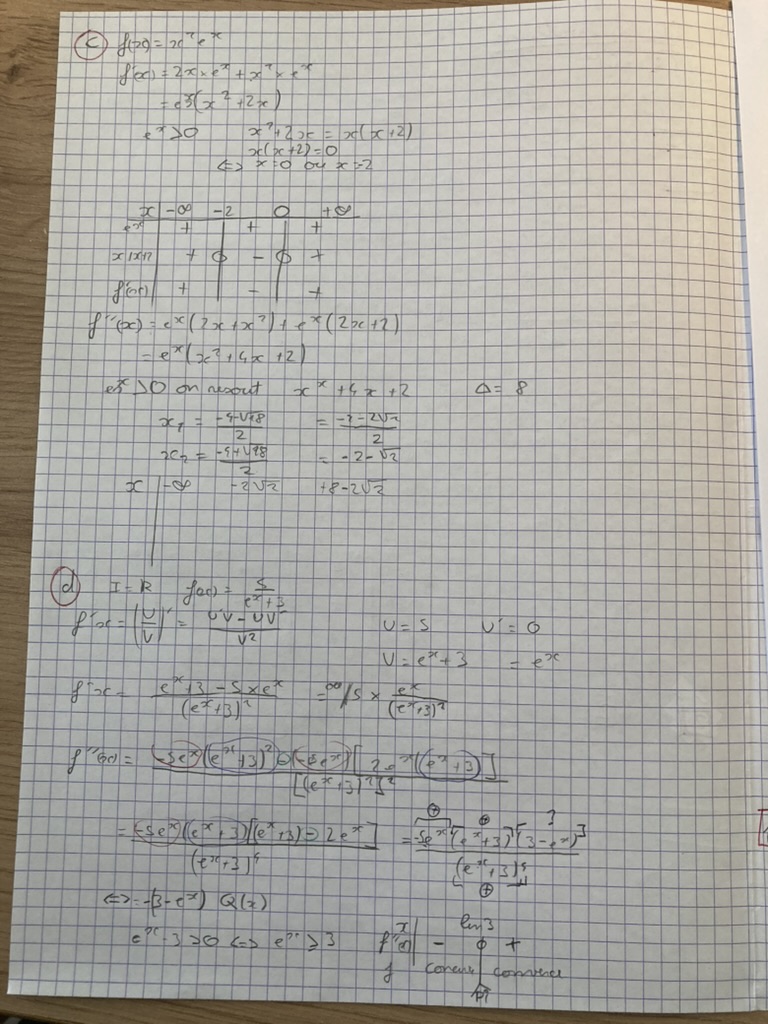 c f(x) = x² e^x
f'(x) = 2x × e^x + x² × e^x
= e^x(x² + 2x)
e^x > 0 x² + 2x = x(x+2)
x(x+2) = 0
<=> x = 0 ou x = -2
x | -∞ -2 0 +∞
e^x | + + +
x(x+2 | + 0 - 0 +
f'(x) | + - +
f''(x) = e^x(2x + x²) + e^x(2x+2)
= e^x(x² + 4x + 2)
e^x > 0 on resout x^x + 4x + 2 Δ = 8
x₁ = (-4-√8)/2 = (-2-2√2)/2
x₂ = (-4+√8)/2 = -2-√2
x | -∞ -2√2 +8-2√2
d I = R f(x) = 5/(e^x+3)
f'x = (U/V)' = (U'V - UV')/V² U = 5 U' = 0
V = e^x + 3 = e^x
f'x = (e^x+3 - 5×e^x)/(e^x+3)² = 5 × e^x/(e^x+3)²
f''(x) = (-5e^x)(e^x+3)² - (-5e^x)[2e^x(e^x+3)]/[(e^x+3)²]²
= (-5e^x)(e^x+3)[(e^x+3) - 2e^x]/(e^x+3)⁴ = -5e^x(e^x+3)(3-e^x)/(e^x+3)⁴
<=> = -(3-e^x) Q(x)
e^x - 3 > 0 <=> e^x > 3
x | ln 3
f''(x) | - 0 +
f concave convexe
PI